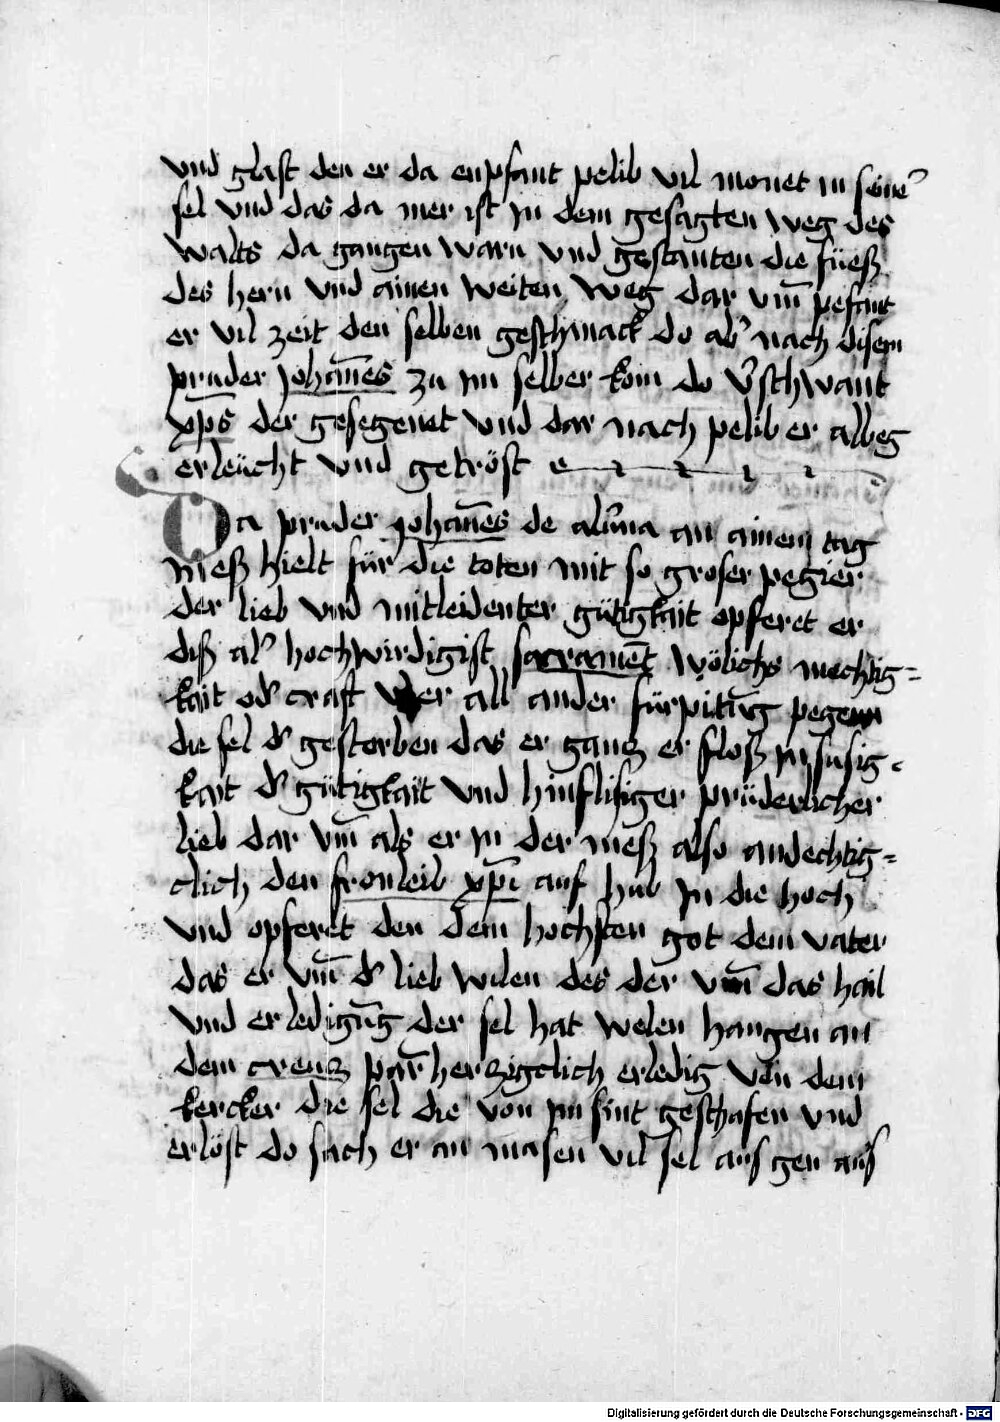 vnd glast den er da enpfant pelib vil monet in seine᷑
sel vnd das da mer ist in dem gesagten weg des
walts da gangen warn vnd gestanten die füesz
des hern vnd ainen weiten weg dar vm̄ pefant
er vil zeit den selben geschmack do ab᷑ nach disem
pruder johan̄es zu im selber kom do v᷑schwant
xp̄s der gesegenet vnd dar nach pelib er albeg
erleücht vnd getröst
Da pruder johan̄es de aluīna an ainem tag
mesz hielt für die toten mit so groser pegier
der lieb vnd mitleidenter gütigkait opferet er
disz al᷑ hochwirdigist sacramēt wölichs mechtig=
kait od᷑ craft vber all ander fürpitūg pegern
die sel d᷑ gestorben das er gancz er flosz in susig=
kait d᷑ gütigkait vnd hinflisiger prüderlicher
lieb dar vm̄ als er in der mesz also andechtig=
clich den fronleib xp̄i auf hub in die hoch
vnd opferet den dem hochsten got dem vater
das er vm̄ d᷑ lieb wilen des der vm̄ das hail
vnd erledigūg der sel hat welen hangen an
dem creucz parm̄herczigclich erledig von dem
kercker die sel die von im sint geschafen vnd
erlöst do sach er an masen vil sel aus gen aus
Digitalisierung gefördert durch die Deutsche Forschungsgemeinschaft - DFG